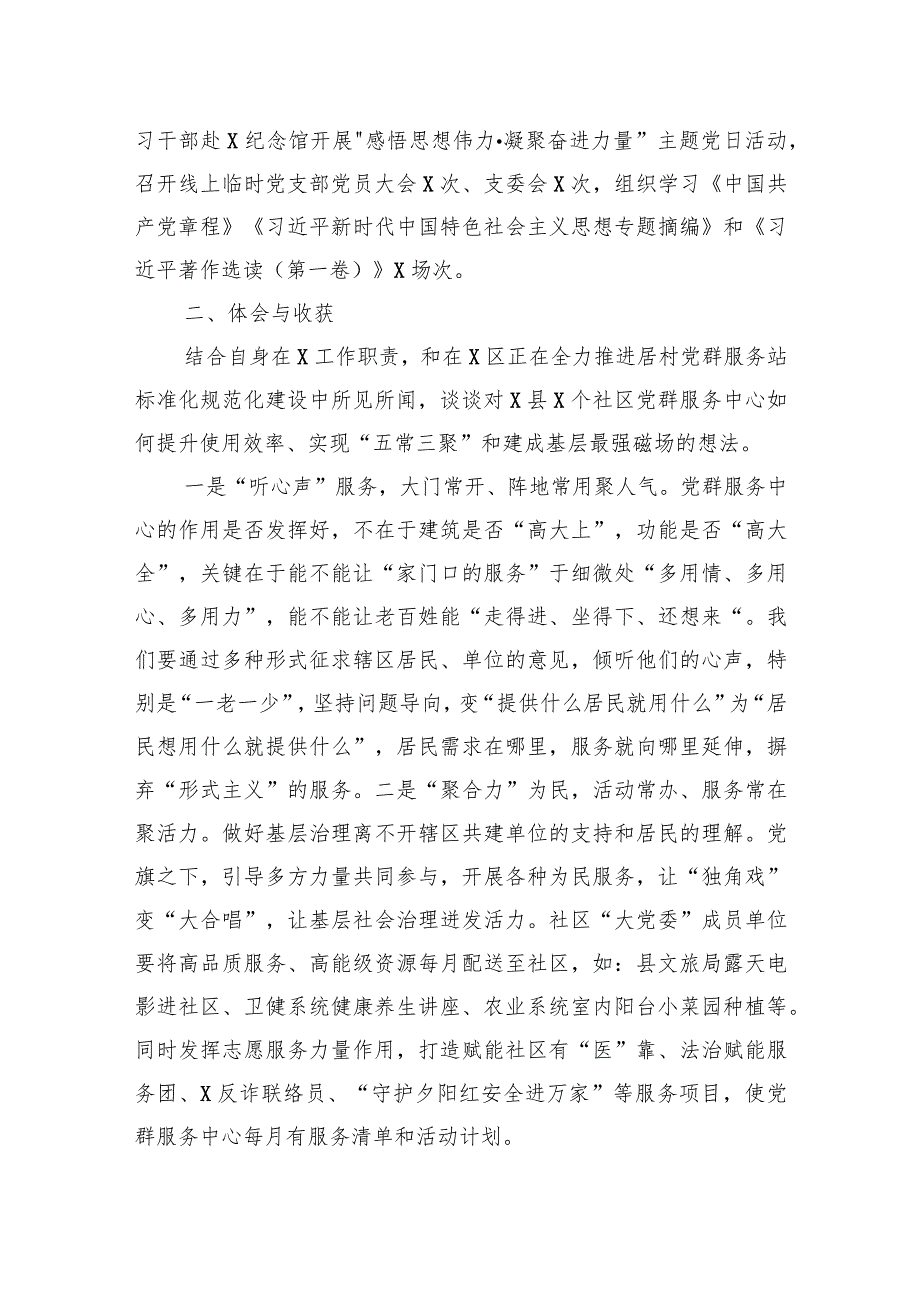 习干部赴X纪念馆开展"感悟思想伟力•凝聚奋进力量”主题党日活动，
召开线上临时党支部党员大会X次、支委会X次，组织学习《中国共
产党章程》《习近平新时代中国特色社会主义思想专题摘编》和《习
近平著作选读（第一卷）》X场次。
二、体会与收获
结合自身在X工作职责，和在X区正在全力推进居村党群服务站
标准化规范化建设中所见所闻，谈谈对X县X个社区党群服务中心如
何提升使用效率、实现“五常三聚”和建成基层最强磁场的想法。
一是“听心声”服务，大门常开、阵地常用聚人气。党群服务中
心的作用是否发挥好，不在于建筑是否“高大上”，功能是否“高大
全”，关键在于能不能让“家门口的服务”于细微处“多用情、多用
心、多用力”，能不能让老百姓能“走得进、坐得下、还想来“。我
们要通过多种形式征求辖区居民、单位的意见，倾听他们的心声，特
别是“一老一少”，坚持问题导向，变“提供什么居民就用什么”为“居
民想用什么就提供什么”，居民需求在哪里，服务就向哪里延伸，摒
弃“形式主义”的服务。二是“聚合力”为民，活动常办、服务常在
聚活力。做好基层治理离不开辖区共建单位的支持和居民的理解。党
旗之下，引导多方力量共同参与，开展各种为民服务，让“独角戏”
变“大合唱”，让基层社会治理迸发活力。社区“大党委”成员单位
要将高品质服务、高能级资源每月配送至社区，如：县文旅局露天电
影进社区、卫健系统健康养生讲座、农业系统室内阳台小菜园种植等。
同时发挥志愿服务力量作用，打造赋能社区有“医”靠、法治赋能服
务团、X反诈联络员、“守护夕阳红安全进万家”等服务项目，使党
群服务中心每月有服务清单和活动计划。